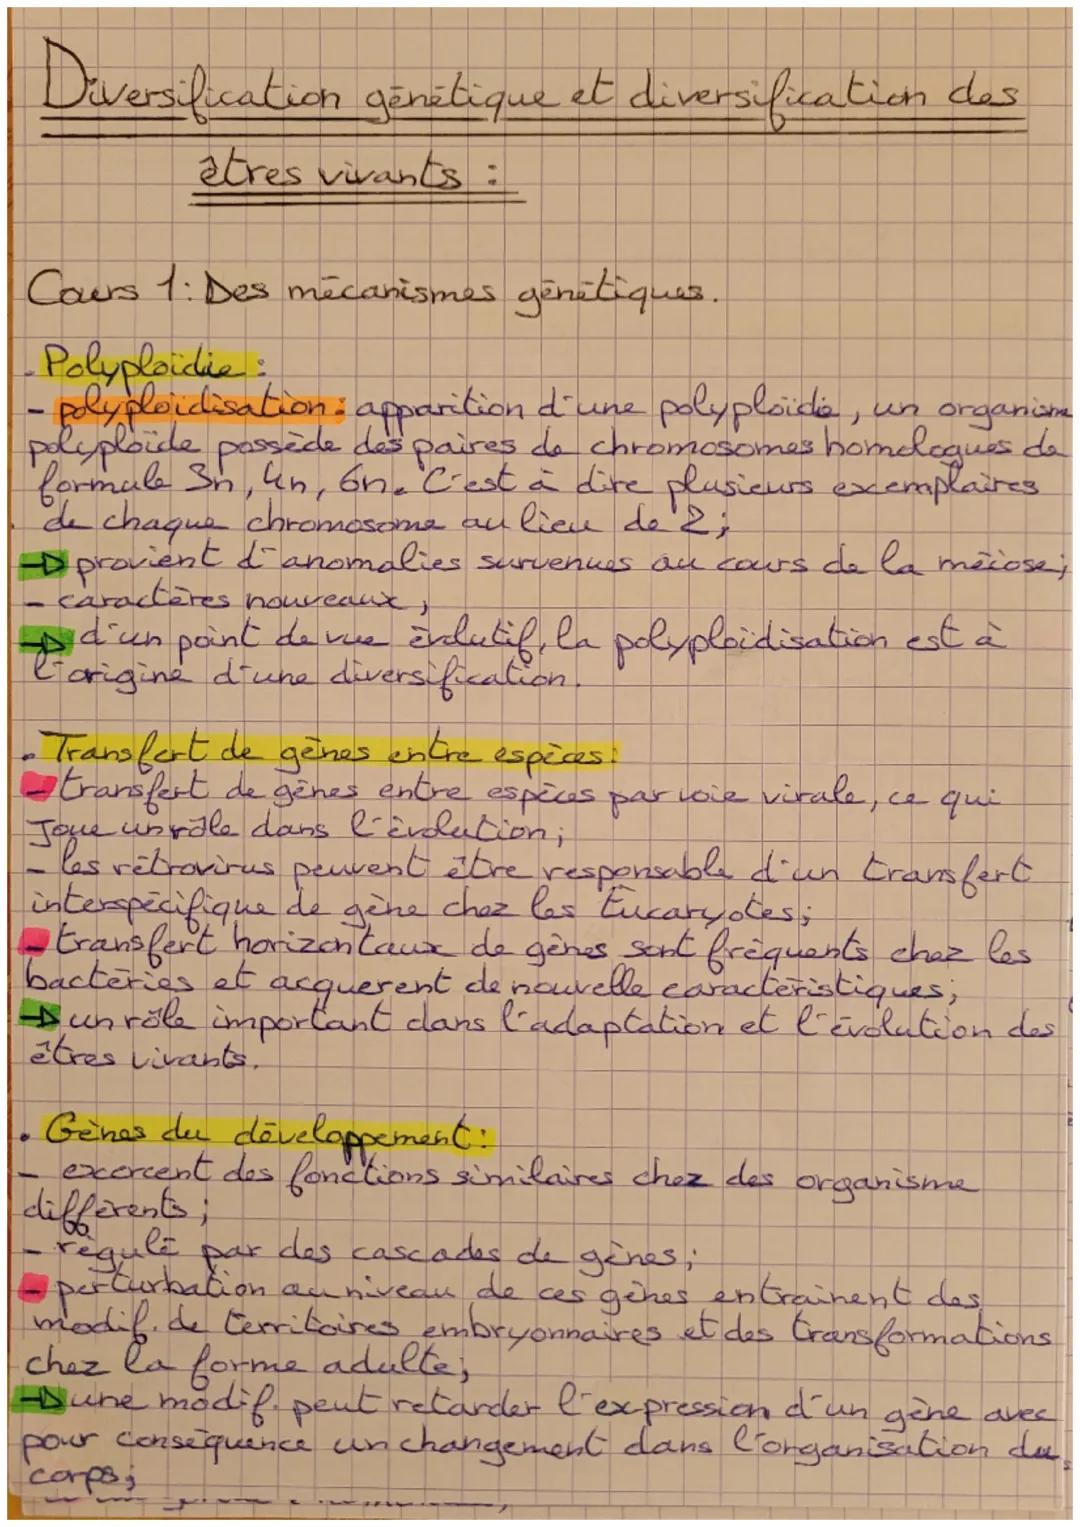 Diversification génétique et diversification des
êtres vivants :
Cours 1: Des mécanismes génétiques.
. Polyploïdie :
- polyploïdisation : apparition d'une polyploïdie, un organisme
polyploïde possède des paires de chromosomes homologues de
formule 3n, 4n, 6n. C'est à dire plusieurs exemplaires
de chaque chromosome au lieu de 2 ;
→ provient d'anomalies survenues au cours de la méiose ;
- caractères nouveaux ;
→ d'un point de vue évolutif, la polyploïdisation est à
l'origine d'une diversification.
. Transfert de gènes entre espèces :
- transfert de gènes entre espèces par voie virale, ce qui
Joue un rôle dans l'évolution ;
- les rétrovirus peuvent être responsable d'un transfert
interspécifique de gène chez les Eucaryotes ;
- transfert horizontaux de gènes sont fréquents chez les
bactéries et acquerent de nouvelle caractéristiques ;
→ un rôle important dans l'adaptation et l'évolution des
êtres vivants.
. Gènes du développement :
- exercent des fonctions similaires chez des organisme
différents ;
- régulé par des cascades de gènes ;
- perturbation au niveau de ces gènes entrainent des
modif. de territoires embryonnaires et des transformations
chez la forme adulte ;
→ une modif. peut retarder l'expression d'un gène avec
pour conséquence un changement dans l'organisation du
corps ;